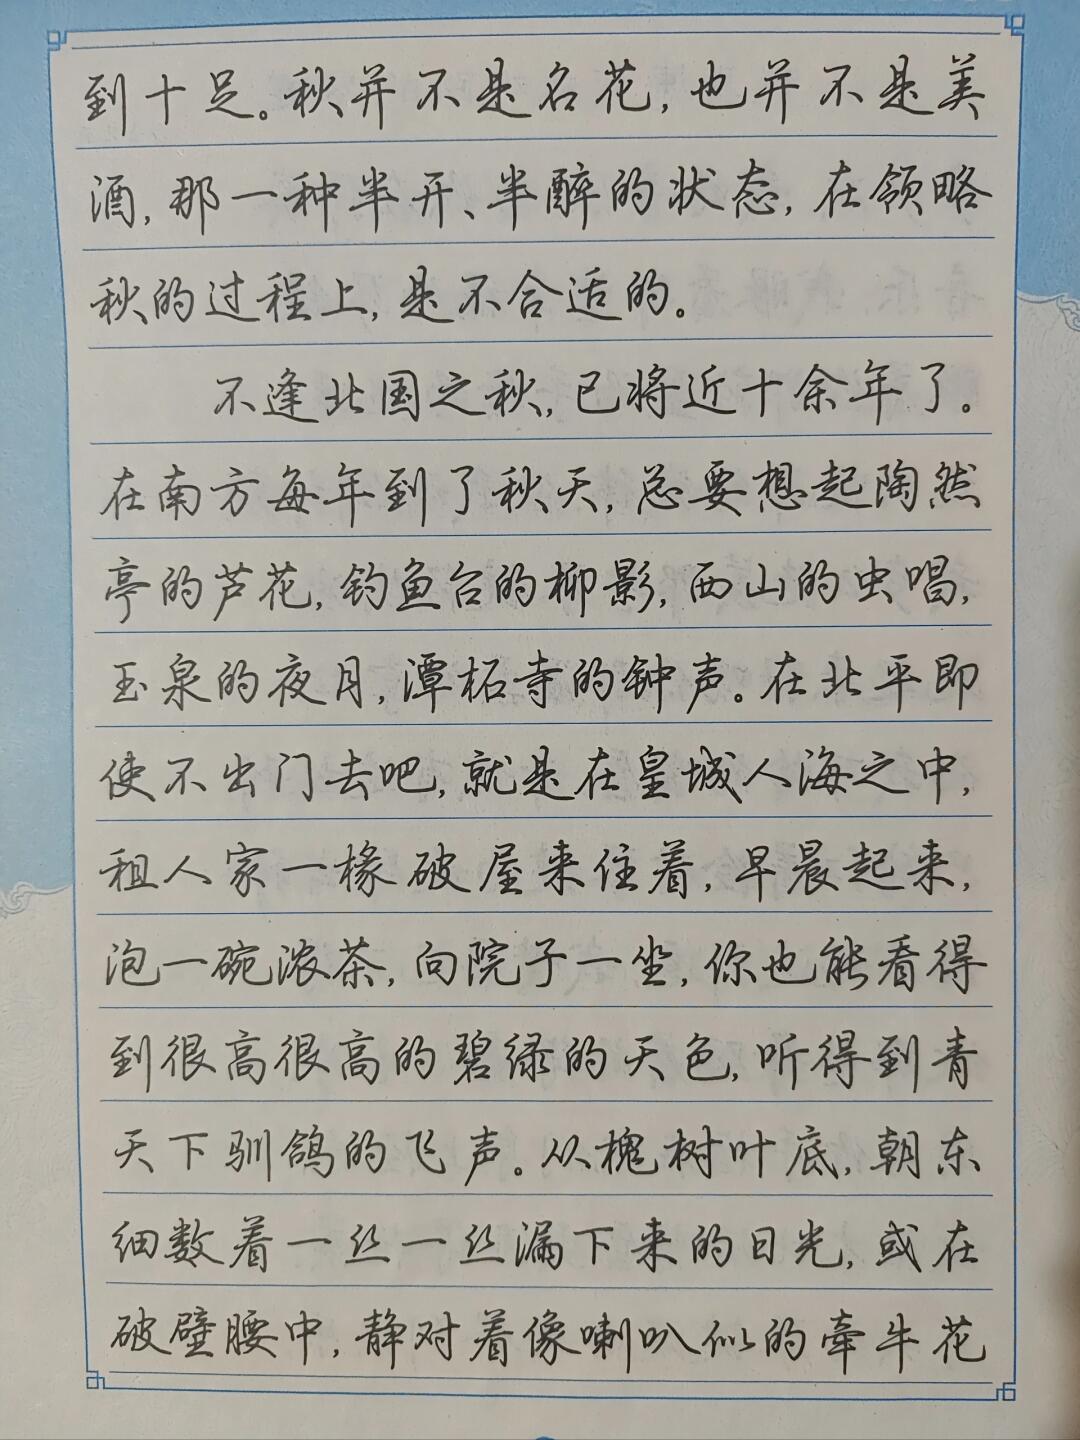 到十足。秋并不是名花，也并不是美
酒，那一种半开、半醉的状态，在领略
秋的过程上，是不合适的。
不逢北国之秋，已将近十余年了。
在南方每年到了秋天，总要想起陶然
亭的芦花，钓鱼台的柳影，西山的虫唱，
玉泉的夜月，潭柘寺的钟声。在北平即
使不出门去吧，就是在皇城人海之中，
租人家一椽破屋来住着，早晨起来，
泡一碗浓茶，向院子一坐，你也能看得
到很高很高的碧绿的天色，听得到青
天下驯鸽的飞声。从槐树叶底，朝东
细数着一丝一丝漏下来的日光，或在
破壁腰中，静对着像喇叭似的牵牛花